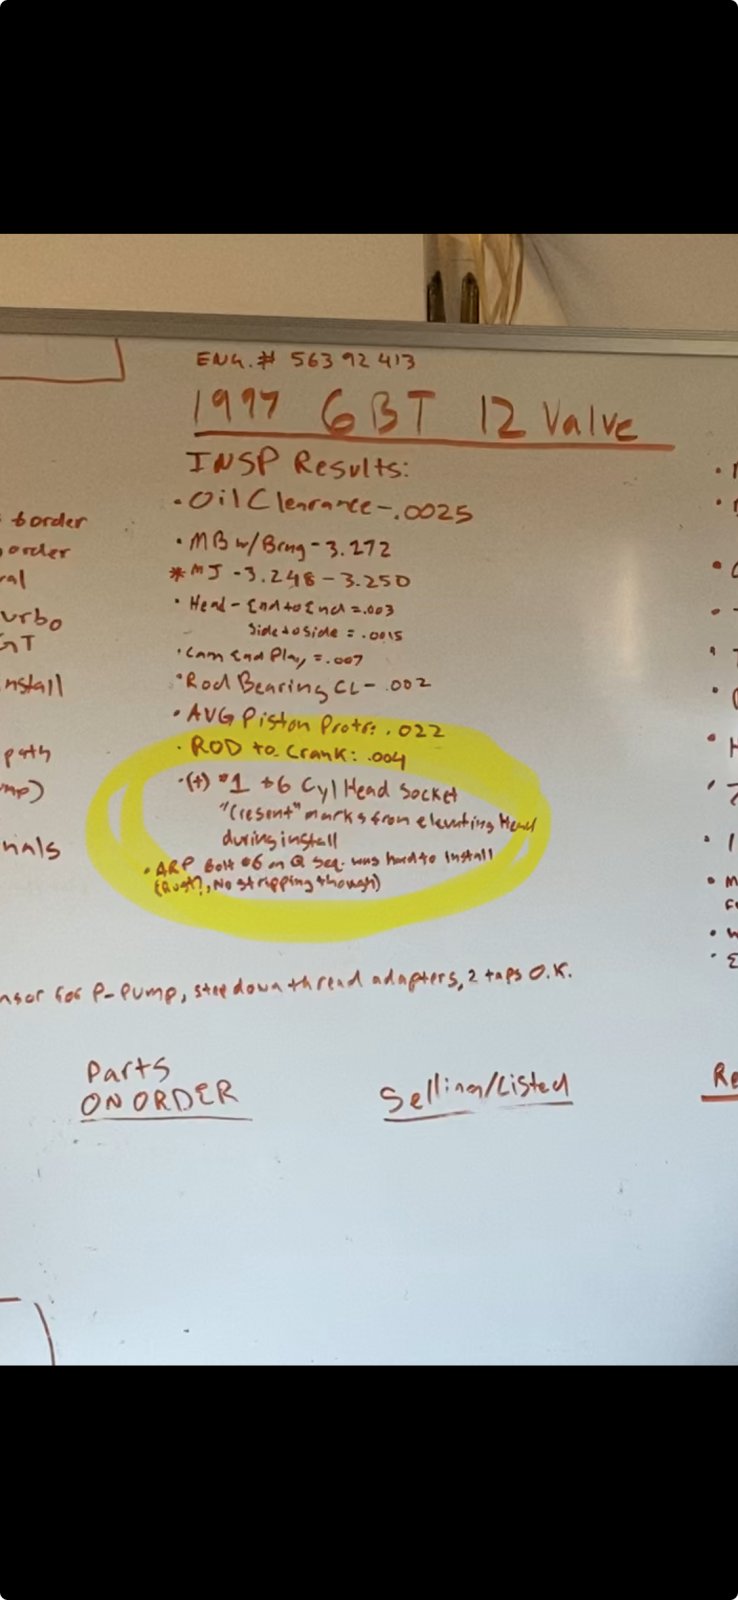 ENG.# 56392413
1997 6BT 12 Valve
INSP Results:
• Oil Clearance - .0025
• MB w/Brng - 3.272
* MJ - 3.248 - 3.250
• Head - End to End = .003
Side to Side = .0015
• Cam End Play = .007
• Rod Bearing CL - .002
• AVG Piston Protr: .022
• ROD to Crank: .004
• (+) #1 + 6 Cyl Head Socket
"Cresent" marks from elevating Head
during install
• ARP Bolt #6 on Seq. was hard to install
(Rust?, No stripping though)
border
order
ral
urbo
GT
nstall
path
mp)
nials
nsor for P-Pump, step down thread adapters, 2 taps O.K.
Parts
ON ORDER
Selling/Listed
Re